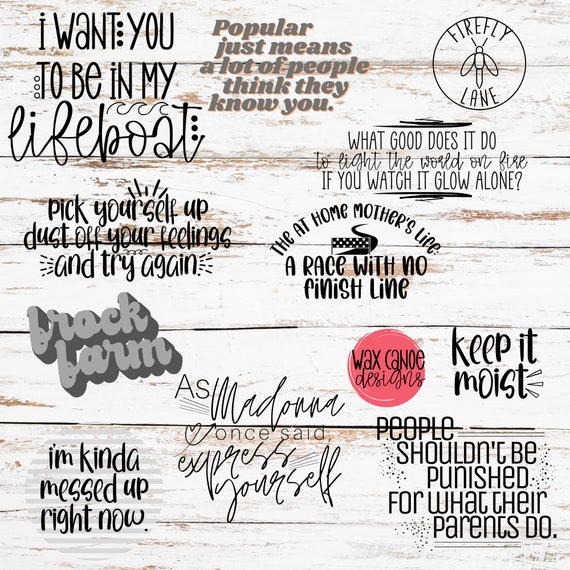 i WANT YOU
TO BE IN MY
lifeboat
Popular
just means
a lot of people
think they
know you.
FIREFLY
LANE
WHAT GOOD DOES IT DO
to light the world on fire
IF YOU WATCH IT GLOW ALONE?
pick yourself up
dust off your feelings
and try again
THE AT HOME MOTHER'S LIFE:
A RACE WITH NO
FINISH LINE
brock
farm
WAX CANOE
designs
keep it
moist
AS
Madonna
once said,
express
yourself
i'm kinda
messed up
right now.
PEOPLE
SHOULDN'T BE
PUNISHED
FOR WHAT THEIR
PARENTS DO.